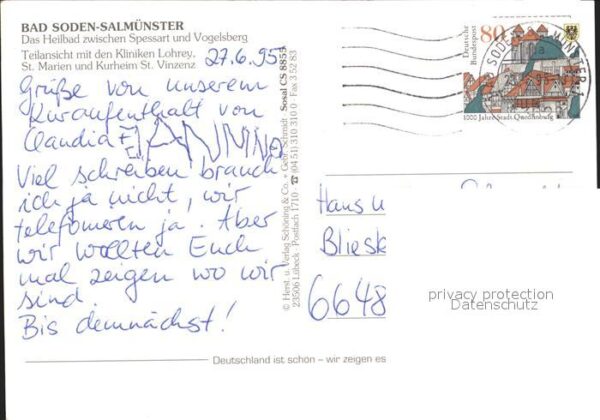 BAD SODEN-SALMÜNSTER
Das Heilbad zwischen Spessart und Vogelsberg
Teilansicht mit den Kliniken Lohrey,
St. Marien und Kurheim St. Vinzenz
27.6.95
Grüße von unserem
Kuraufenthalt von
Claudia + JANNA
Viel schreiben brauch
ich ja nicht, wir
telefonieren ja. Aber
wir wollten Euch
mal zeigen wo wir
sind.
Bis demnächst!
© Herst. u. Verlag Schöning & Co. + Gebr. Schmidt · Sosal CS 8855
23506 Lübeck · Postfach 1710 · ☎ (04 51) 310 310 0 · Fax 3 52 83
Deutsche
Bundespost
80
1000 Jahre Stadt Quedlinburg
Hans u
Bliesk
6648
privacy protection
Datenschutz
Deutschland ist schön – wir zeigen es